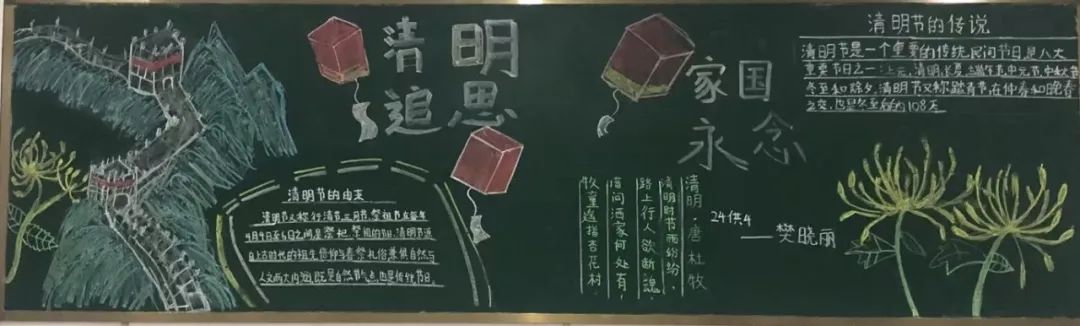 清明
追思
清明节的由来
清明节又称行清节、三月节、祭祖节在每年
4月4日至6日之间是祭祀、祭祖的节日,清明节源
自上古时代的祖先信仰与春祭礼俗兼俱自然与
人文两大内涵,既是自然节气点,也是传统节日。
家国
永念
清明·唐·杜牧
清明时节雨纷纷,
路上行人欲断魂,
借问酒家何处有,
牧童遥指杏花村,
24供4
——樊晓丽
清明节的传说
清明节是一个重要的传统民间节日是八大
重要节日之一:上元,清明,长夏,端午节,中元节,中秋节
冬至和除夕,清明节又称踏青节,在仲春和晚春
之交,也是冬至后的108天